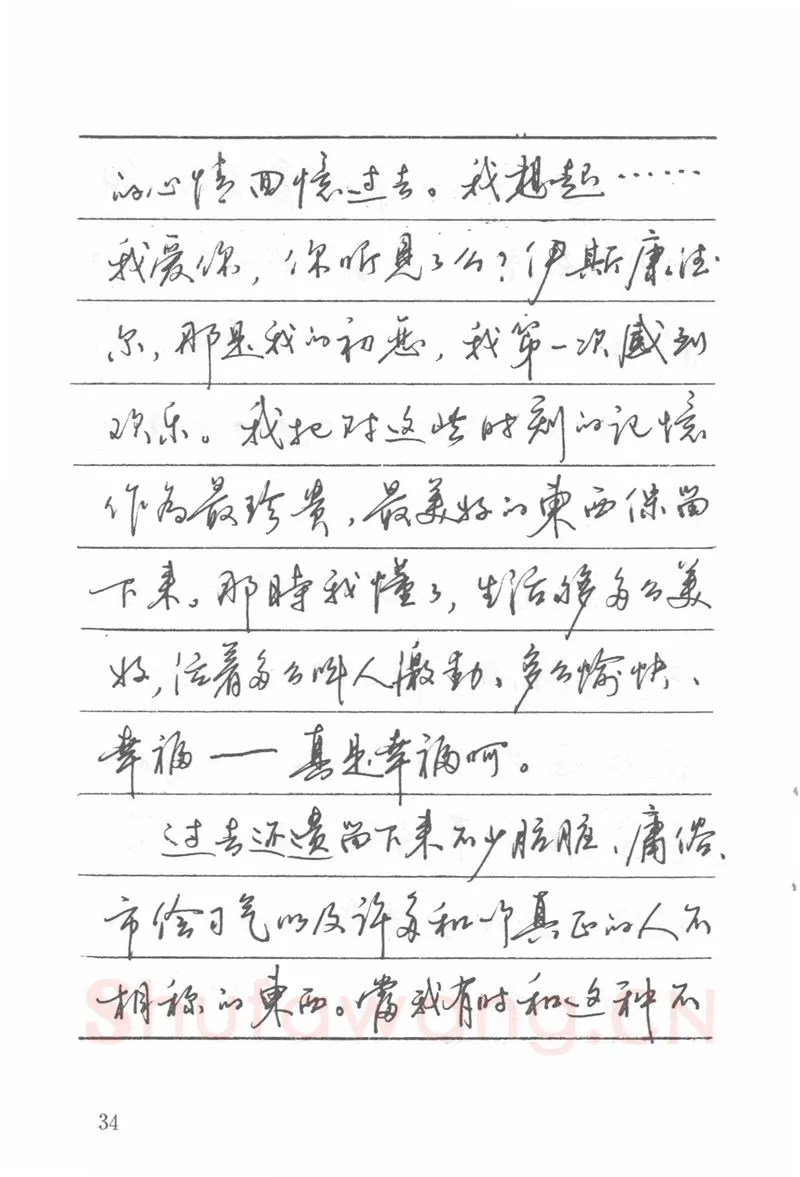 的心情回憶过去。我想起……
我爱你，你听見了么？伊斯康德
尔，那是我的初恋，我第一次感到
欢乐。我把对这些时刻的记憶
作为最珍贵，最美好的東西保留
下来。那時我懂了，生活够多么美
好，活着多么叫人激動、多么愉快、
幸福——真是幸福呵。
过去还遗留下来不少肮脏、庸俗、
市侩习气以及许多和真正的人不
相称的東西。當我有时和这种不
Shufawang.CN
34